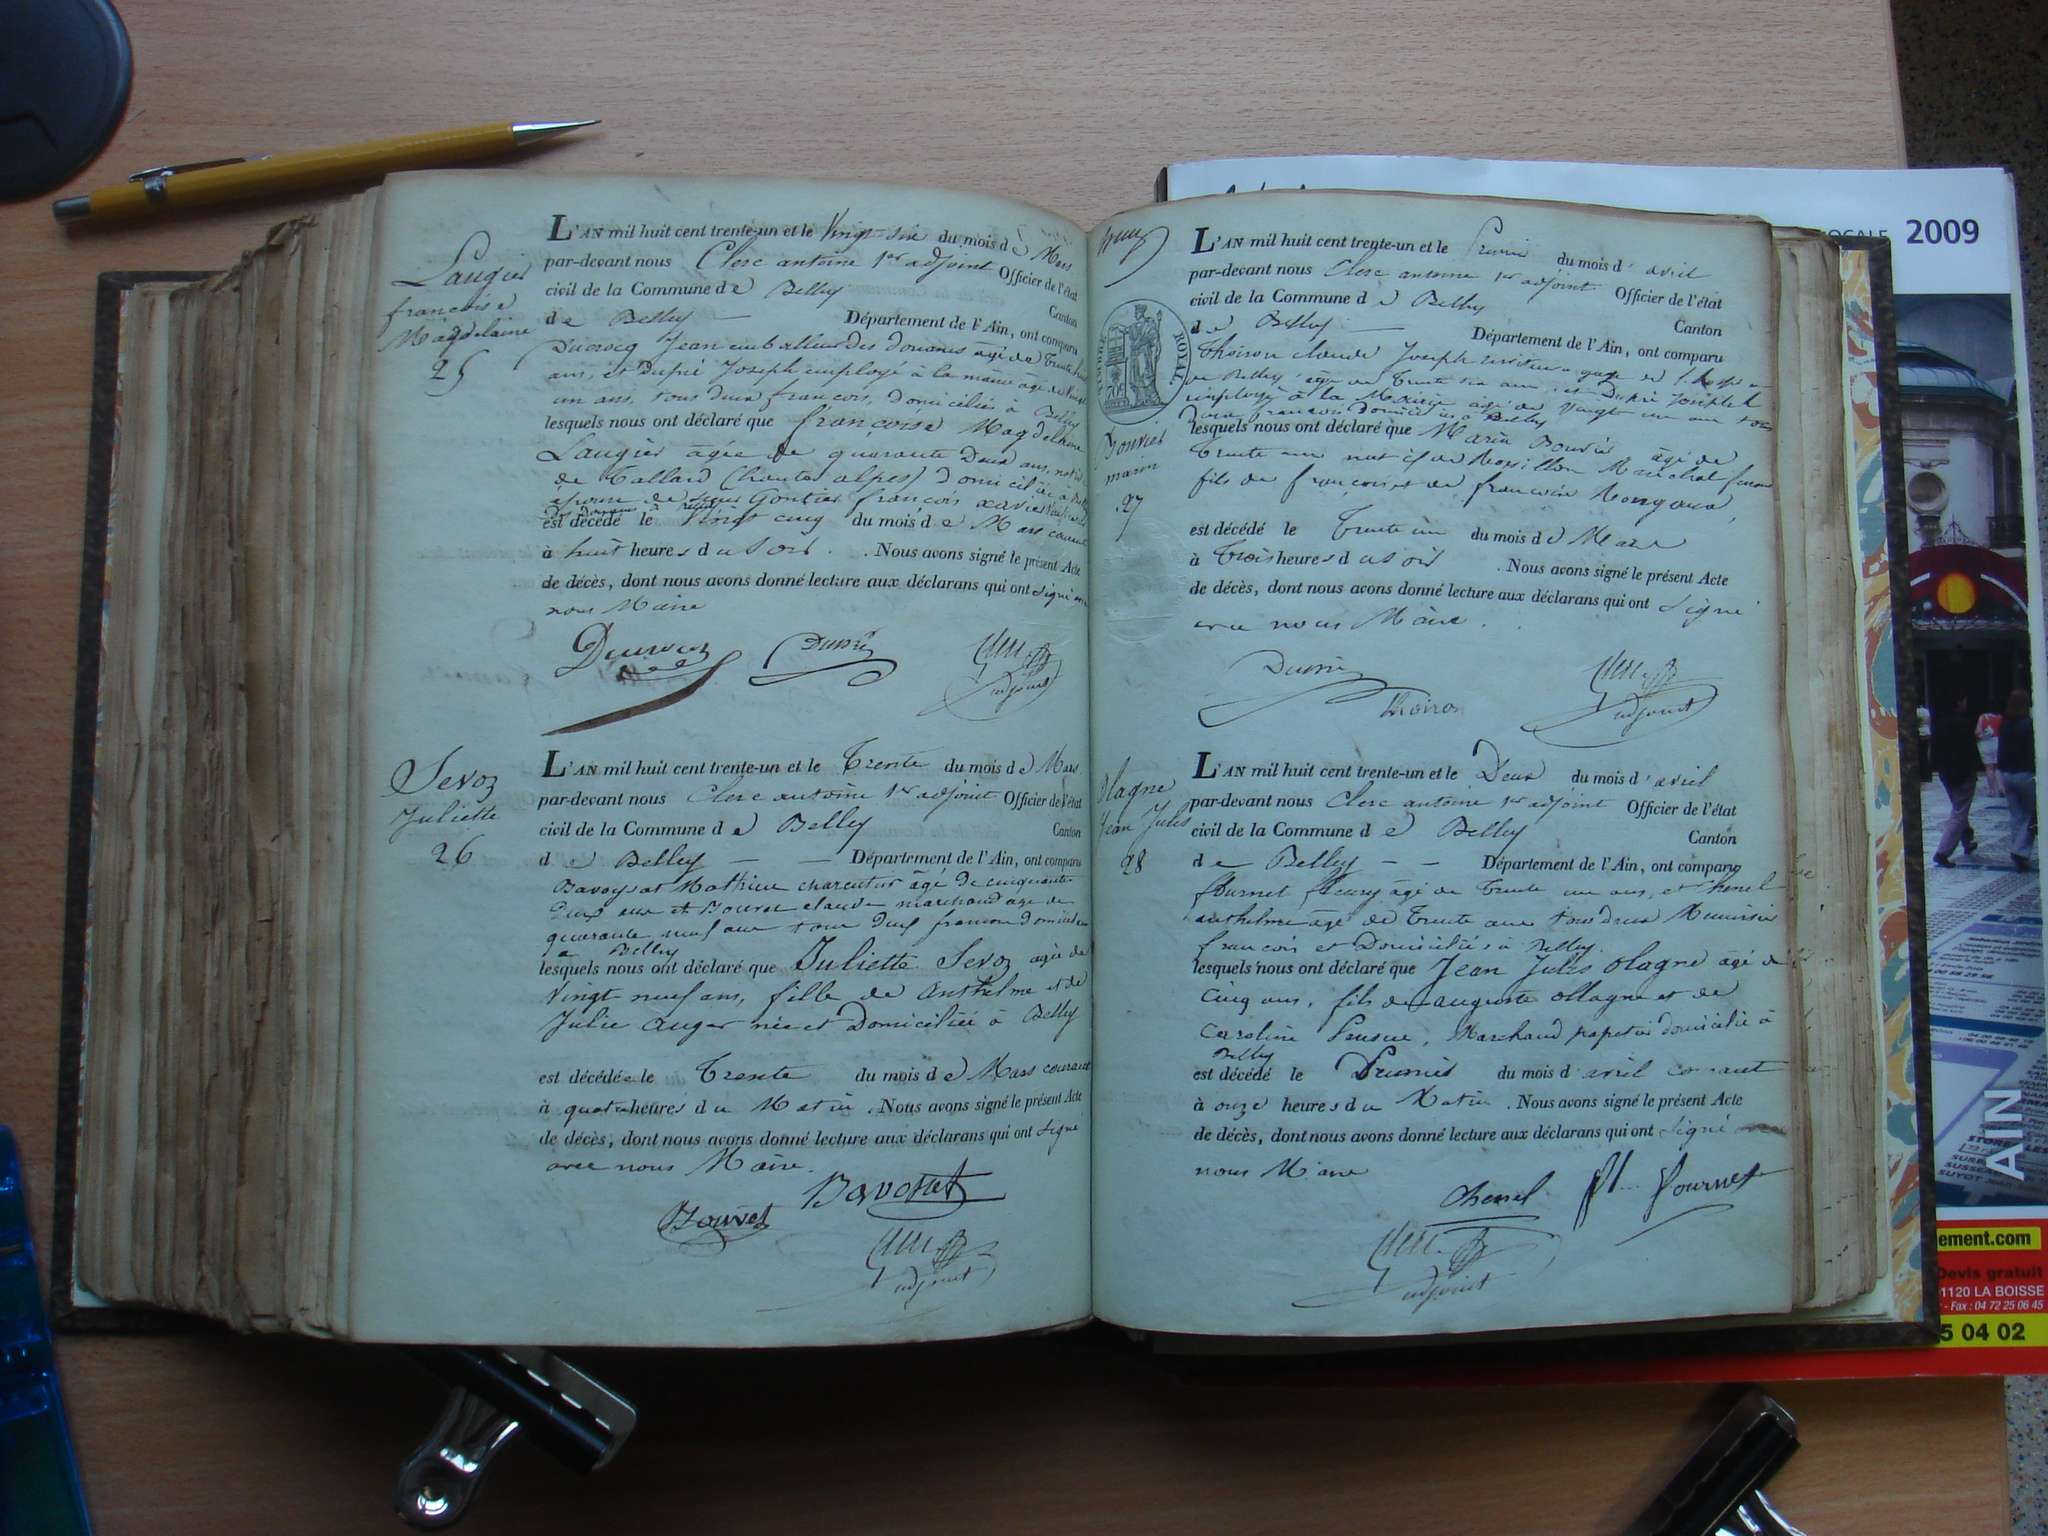 Laugier
françoise
Magdelaine
25
L'AN mil huit cent trente-un et le Vingt six du mois de Mars
par-devant nous Clerc antoine 1er adjoint Officier de l'état
civil de la Commune de Belley Canton
de Belley — Département de l'Ain, ont comparu
Ducrocq Jean emballeur des douanes âgé de Trente
ans, et Dupré Joseph employé à la mairie âgé de Vingt
un ans, tous deux françois, domiciliés à Belley
lesquels nous ont déclaré que françoise Magdelaine
Laugier âgée de quarante Deux ans, native
de Tallard (hautes alpes) domiciliée à Belley
épouse de sieur Gontier françois xavier
est décédé le Vingt cinq du mois de Mars courant
à huit heures du Soir. Nous avons signé le présent Acte
de décès, dont nous avons donné lecture aux déclarans qui ont signé avec
nous Maire
Ducrocq Dupré Clerc
adjoint
Sevoz
Juliette
26
L'AN mil huit cent trente-un et le Trente du mois de Mars
par-devant nous Clerc antoine 1er adjoint Officier de l'état
civil de la Commune de Belley Canton
de Belley — — Département de l'Ain, ont comparu
Bavozat Mathieu charcutier âgé de cinquante
deux ans et Bouvet claude marchand age de
quarante neuf ans tous deux francois domiciliés
a Belley
lesquels nous ont déclaré que Juliette Sevoz agée de
Vingt neuf ans, fille de Anthelme et de
Julie Auger née et Domiciliée à Belley
est décédée le Trente du mois de Mars courant
à quatre heures du Matin. Nous avons signé le présent Acte
de décès, dont nous avons donné lecture aux déclarans qui ont signé
avec nous Maire.
Bouvet Bavozat
Clerc
adjoint
TIMBRE ROYAL
Bouvier
marin
27
L'AN mil huit cent trente-un et le Premier du mois d'avril
par-devant nous Clerc antoine 1er adjoint Officier de l'état
civil de la Commune de Belley
de Belley — Canton
Département de l'Ain, ont comparu
Thoiron claude Joseph
de Belley âgé de Trente six ans, et Dupré Joseph
employé à la Mairie agé de Vingt un ans tous
deux francois domiciliés à Belley
lesquels nous ont déclaré que Marin Bouvier âgé de
Trente un natif de Rossillon
fils de françois et de françoise
est décédé le Trente un du mois de Mars
à Trois heures du Soir. Nous avons signé le présent Acte
de décès, dont nous avons donné lecture aux déclarans qui ont signé
avec nous Maire.
Dupré Thoiron Clerc
adjoint
Olagne
Jean Jules
28
L'AN mil huit cent trente-un et le Deux du mois d'avril
par-devant nous Clerc antoine 1er adjoint Officier de l'état
civil de la Commune de Belley Canton
de Belley — — Département de l'Ain, ont comparu
fournet fleury âgé de Trente un ans, et Chenel
anthelme age de Trente ans tous deux Menuisier
francois et Domiciliés à Belley.
lesquels nous ont déclaré que Jean Jules Olagne agé de
Cinq ans, fils de auguste ollagne et de
Caroline, Marchand papetier domicilié à
Belley
est décédé le Premier du mois d'avril courant
à onze heures du Matin. Nous avons signé le présent Acte
de décès, dont nous avons donné lecture aux déclarans qui ont signé avec
nous Maire
Chenel fl. fournet
Clerc
adjoint
OCALE 2009
AIN
ement.com
Devis gratuit
1120 LA BOISSE
- Fax : 04 72 25 06 45
5 04 02